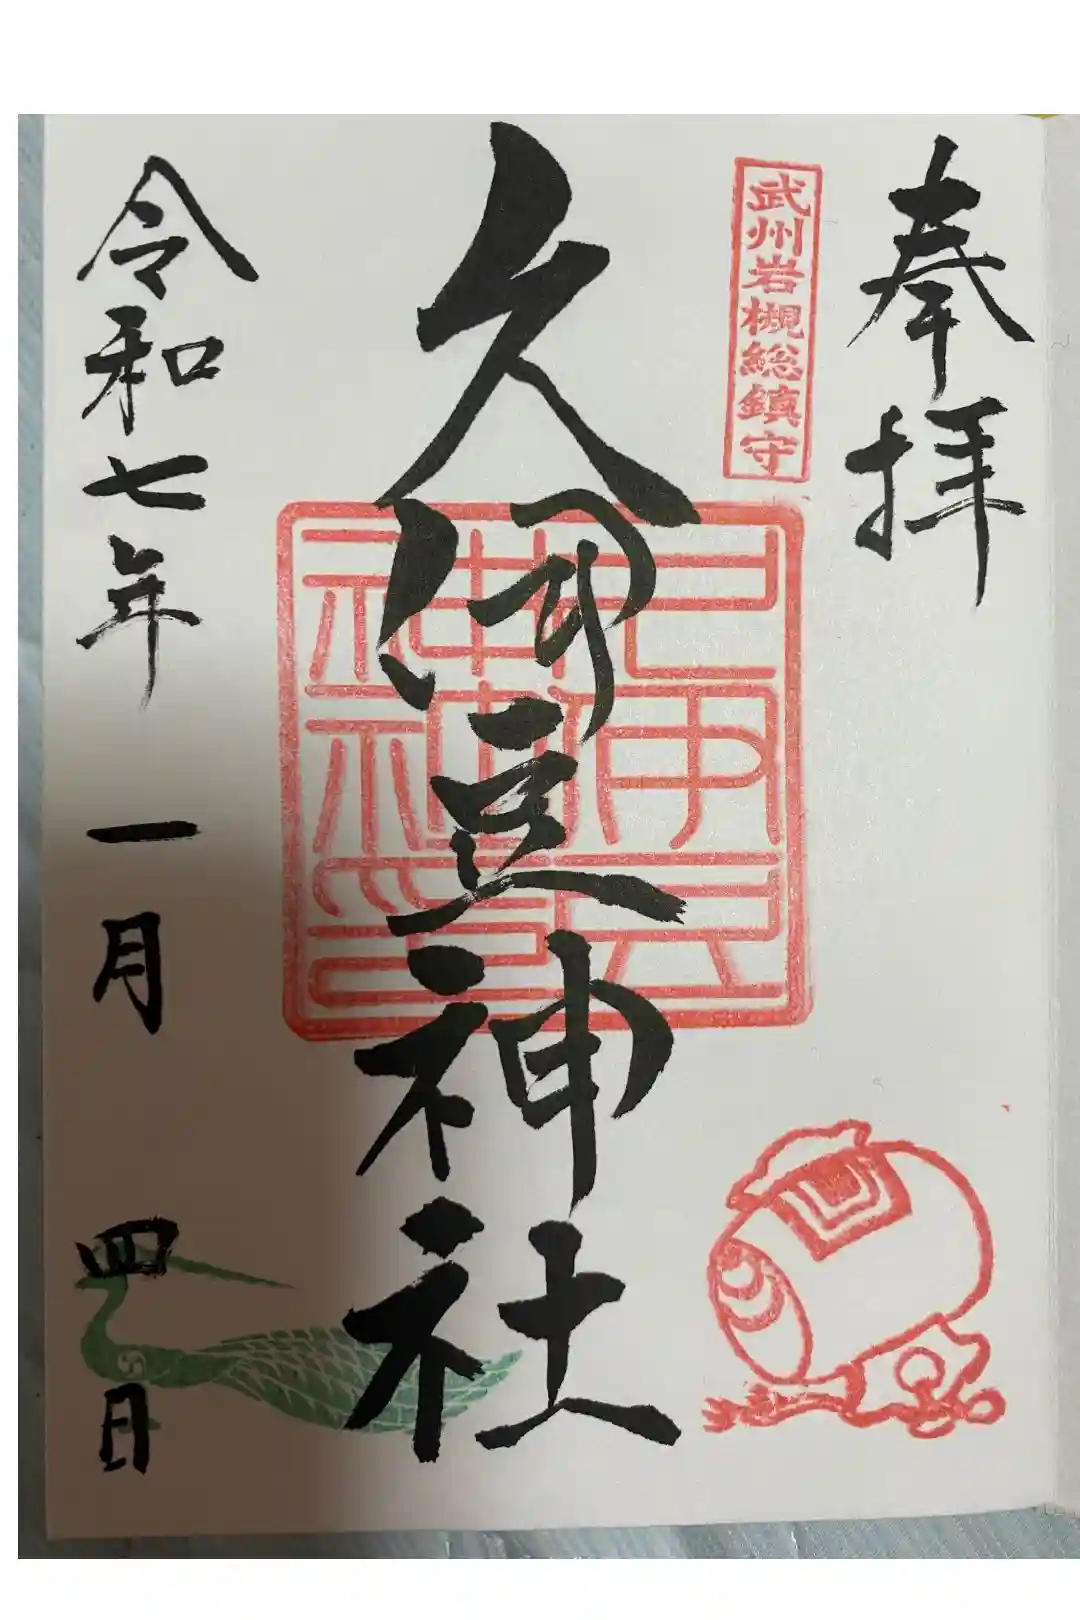 奉拝
武州岩槻総鎮守
久伊豆神社
令和七年一月四日